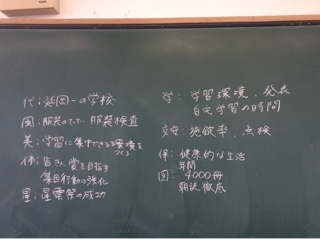 代；延岡一の学校
風；服装のていし、服装検査
美；学習に集中できる環境を
つくる
体；皆さん賞を目指す
集団行動の強化
星；星雲祭の成功
学；学習環境、発表
自宅学習の時間
交安；施錠率、点検
保；健康的な生活
図；年間4000冊
朝読徹底